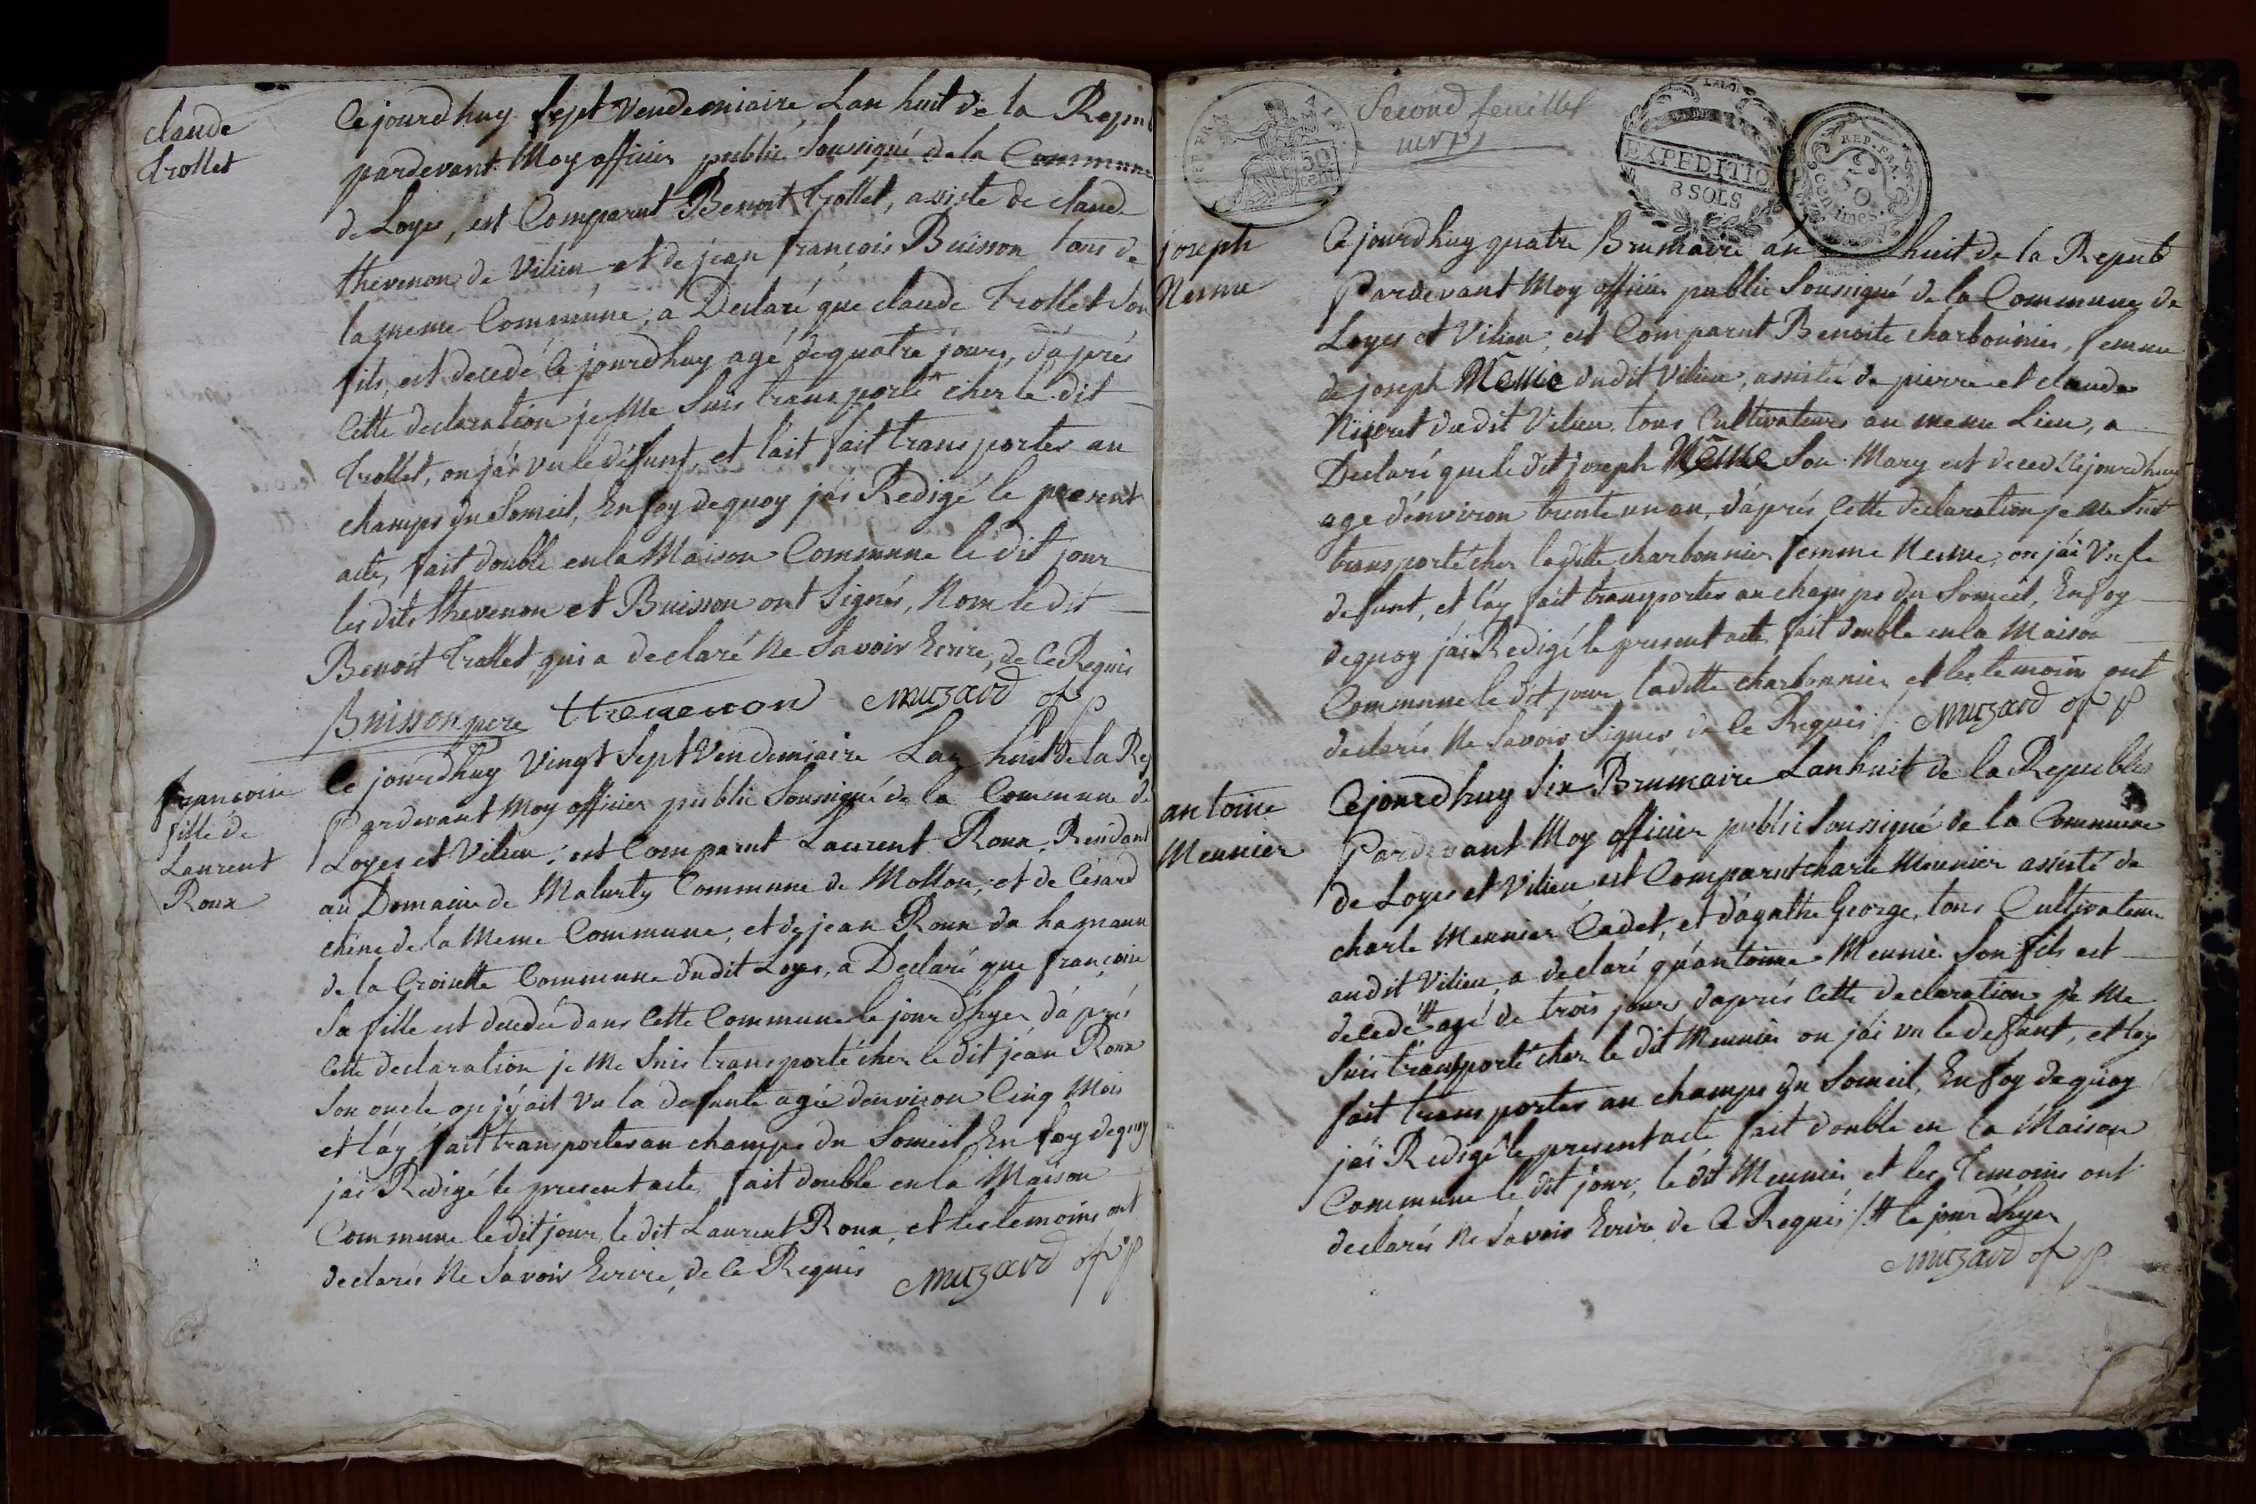 claude
trollet
Cejourdhuy sept vendemiaire Lan huit de la Repub
pardevant Moy officier public Soussigné de la Commune
de Loyes, est Comparut Benoit trollet, assiste de claude
thevenon de Vilieu et de jean françois Buisson tous de
la meme Commune, a Declaré que claude trollet son
fils, est decedé Cejourdhuy agé de quatre jours, d'après
Cette declaration je Me Suis transporté cher le dit
trollet, ou j'ai vu le défunt, et l'ait fait transporter au
champs du Someil, En foy de quoy j'ai Redigé le present
acte, fait double en la Maison Commune le dit jour
les dits thevenon et Buisson ont Signés, Nom le dit
Benoit trollet, qui a declaré Ne Savoir Ecrire, de Ce Requis
Buisson pere thevenon Muzard of p
françoise
fille de
Laurent
Roux
Ce jourdhuy Vingt Sept Vendemiaire Lan huit de la Rep
Pardevant Moy officier public Soussigné de la Commune de
Loyes et Vilieu, est Comparut Laurent Roux, Residant
au Domaine de Maturty Commune de Mollon, et de Cesard
chêne de la Meme Commune, et de jean Roux du hagneaux
de la Croisette Commune dudit Loyes, a Declaré que françoise
Sa fille est decedée dans Cette Commune le jour d'hyer d'après
Cette declaration je Me Suis transporté cher le dit jean Roux
Son oncle ou j'ait vu la defunte agée d'environ Cinq Mois
et l'ay fait transporter au champs du Someil, En foy de quoy
j'ai Redigé le present acte, fait double en la Maison
Commune le dit jour, le dit Laurent Roux, et les temoins ont
declarés Ne Savoir Ecrire, de Ce Requis Muzard of p
REP. FRA.
50
cent.
Second feuillet
EXPEDITION
8 SOLS
REP. FRA.
50
centimes.
joseph
Nesme
Cejourdhuy quatre Brumaire an huit de la Repub
Pardevant Moy officier public Soussigné de la Commune de
Loyes et Vilieu, est Comparut Benoite charbonnier, femme
de joseph Nesme dudit Vilieu, assistée de pierre et claude
dudit Vilieu, tous Cultivateurs au meme Lieu, a
Declaré que le dit joseph Nesme Son Mary est decedé Cejourdhuy
age d'environ trente un an, d'après Cette declaration je me Suit
transporté cher laditte charbonnier femme Nesme, ou j'ai Vu le
defunt, et l'ay fait transporter au champs du Someil, En foy
de quoy j'ai Redigé le present acte fait double en la Maison
Commune le dit jour, laditte charbonnier et les temoin ont
declarés Ne Savoir Signer de Ce Requis /. Muzard of p
antoine
Meunier
Cejourdhuy Six Brumaire Lan huit de la Republi
Pardevant Moy officier public Soussigné de la Commune
de Loyes et Vilieu est Comparut charle Meunier assisté de
charle Meunier Cadet, et d'agathe George, tous Cultivateurs
audit Vilieu, a declaré qu'antoine Meunie Son fils est
decedé # agé de trois jours d'après Cette declaration je Me
Suis transporté cher le dit Meunier ou j'ai vu le defunt, et l'ay
fait transporter au champs du Someil, En foy de quoy
j'ai Redigé le present acte fait double en la Maison
Commune le dit jour, le dit Meunier et les temoins ont
declarés Ne Savoir Ecrire de Ce Requis /. # le jour d'hyer
Muzard of p